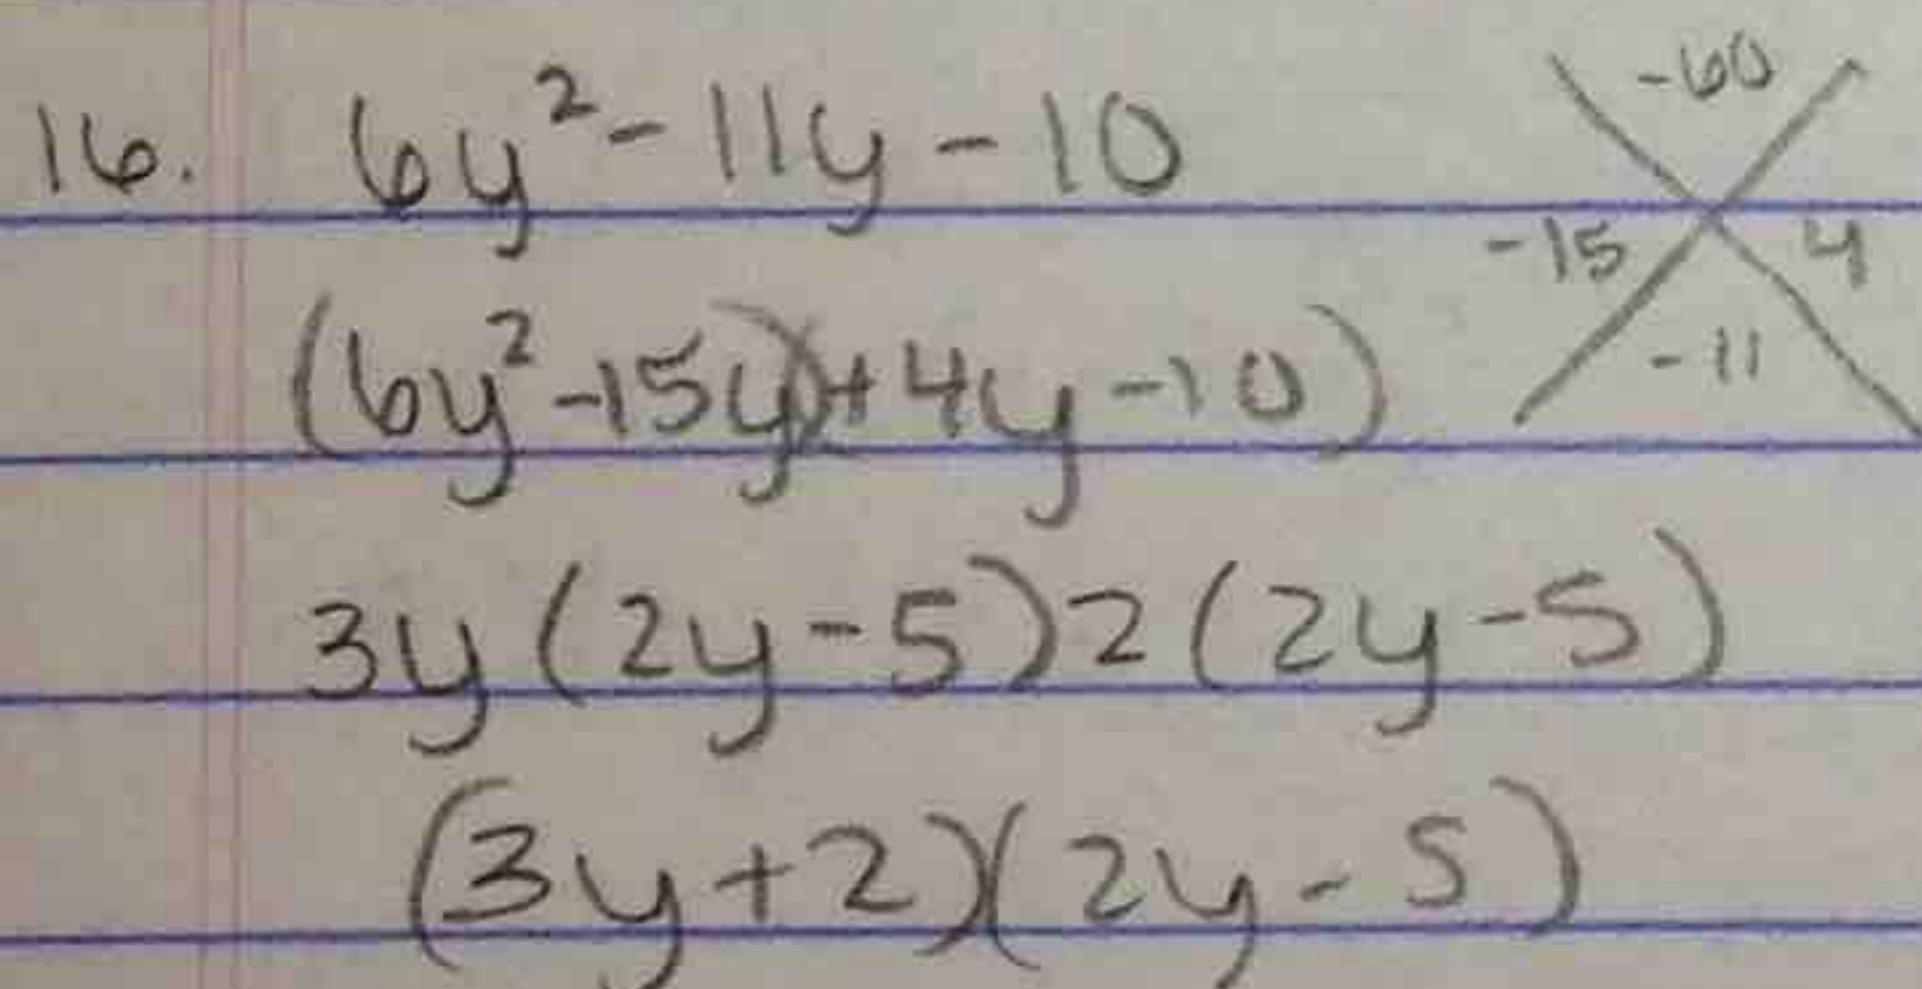 16. 6y² - 11y - 10
-60
-15 4
-11
(6y² -15y)(+4y -10)
3y(2y-5)2(2y-5)
(3y+2)(2y-5)